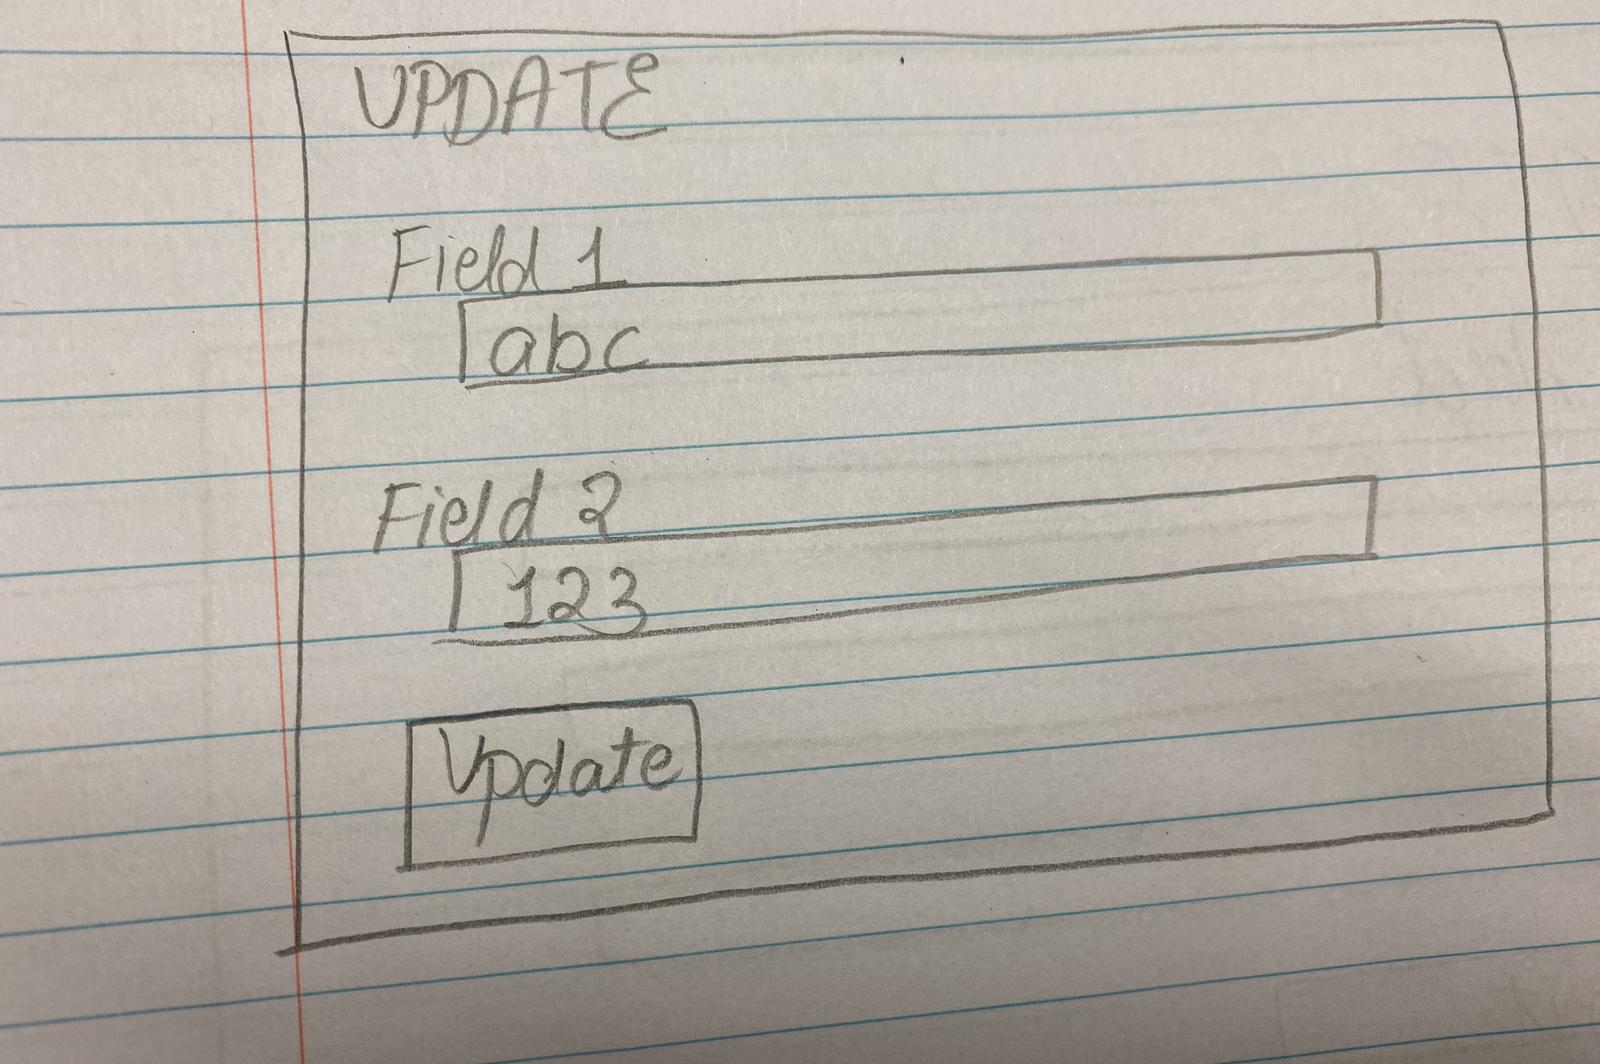 UPDATE
Field 1
abc
Field 2
123
Update